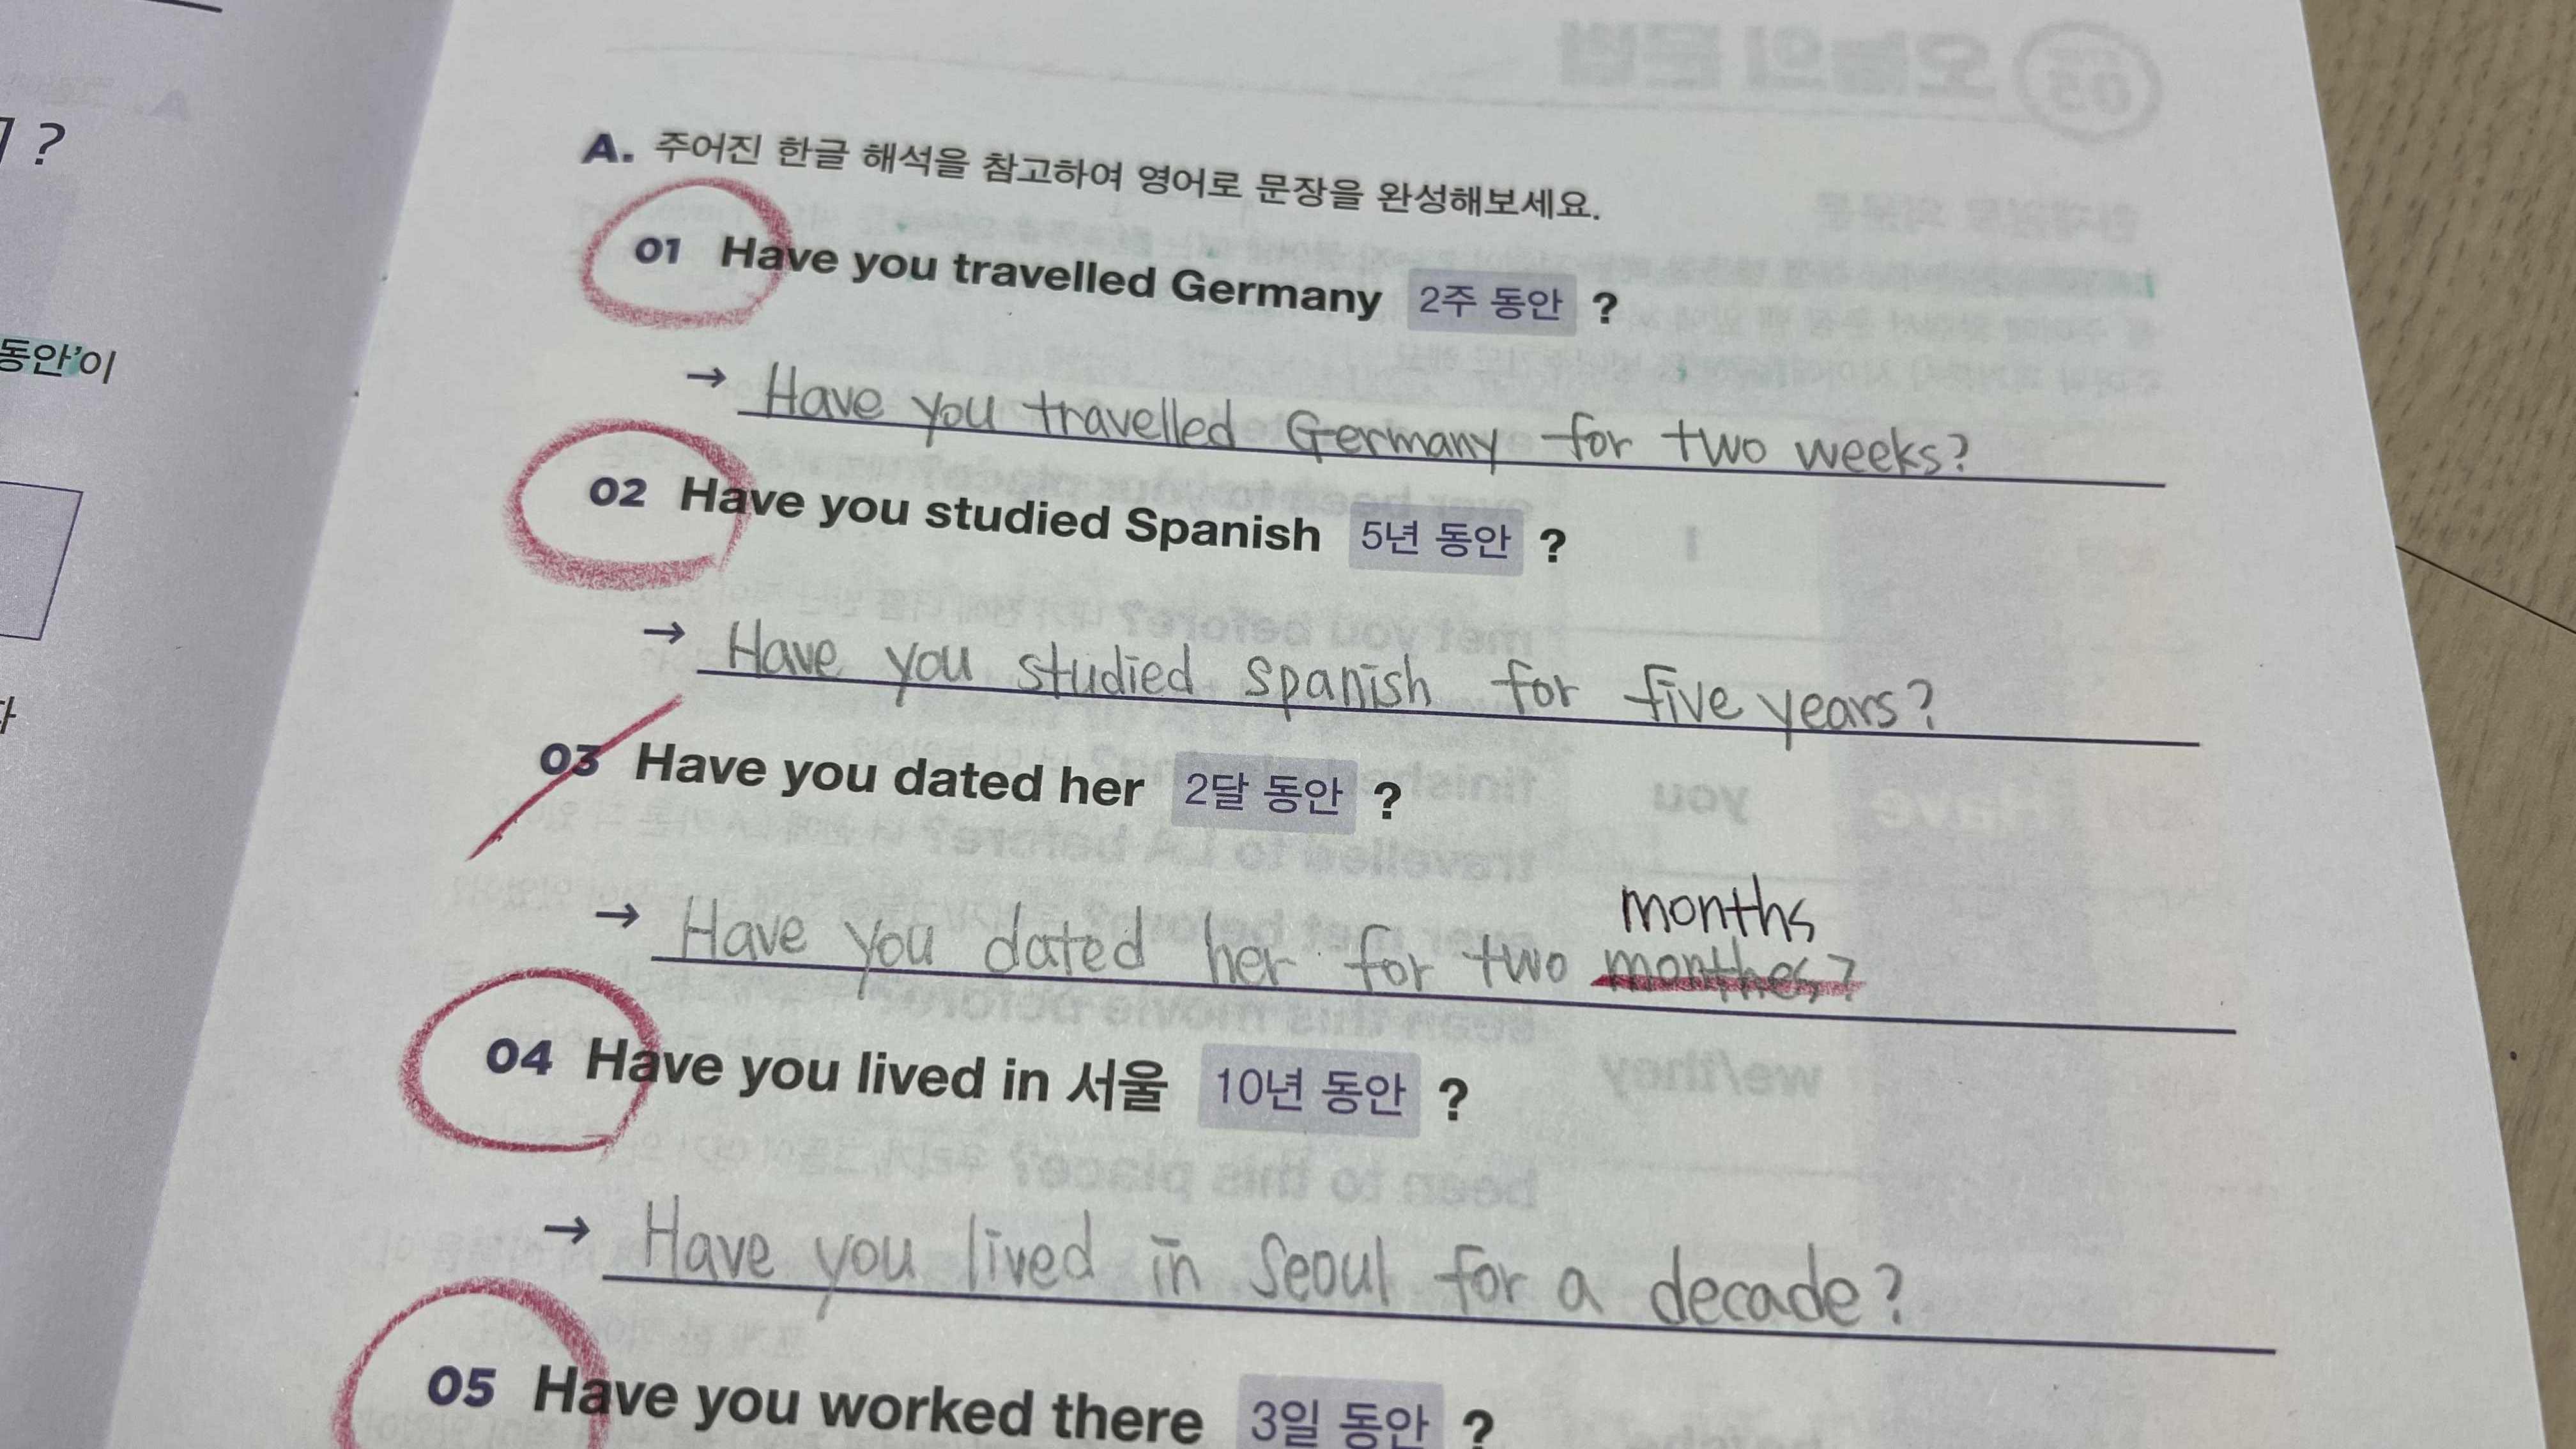 ?
동안'이
A. 주어진 한글 해석을 참고하여 영어로 문장을 완성해보세요.
01 Have you travelled Germany 2주 동안 ?
→ Have you travelled Germany for two weeks?
02 Have you studied Spanish 5년 동안 ?
→ Have you studied spanish for five years?
03 Have you dated her 2달 동안 ?
months
→ Have you dated her for two monthes?
04 Have you lived in 서울 10년 동안 ?
→ Have you lived in Seoul for a decade?
05 Have you worked there 3일 동안 ?